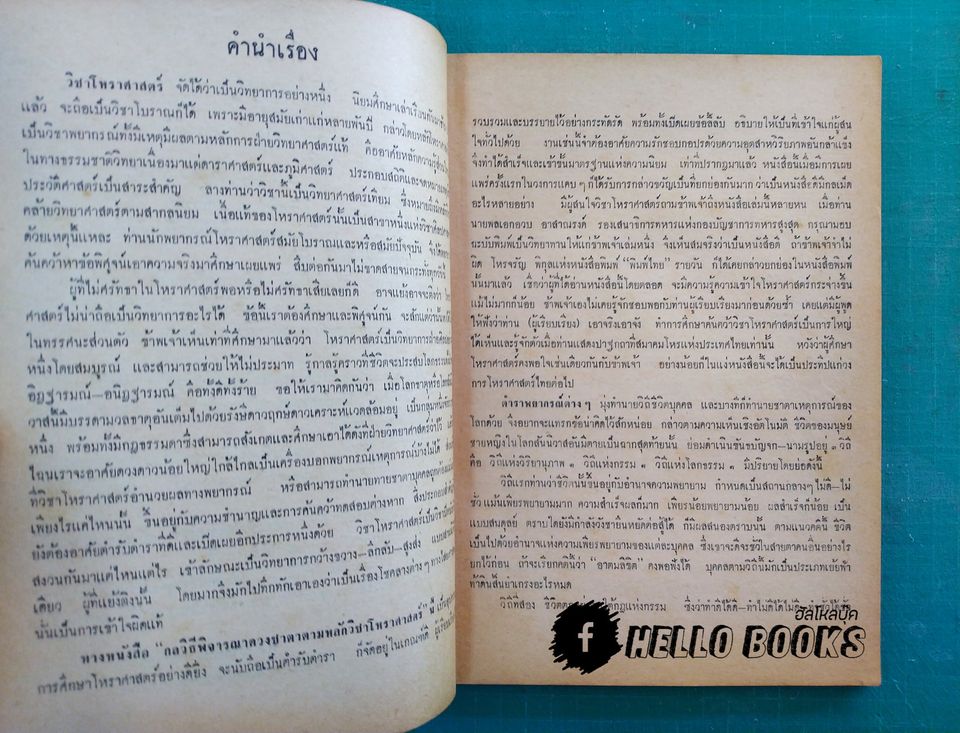 คำนำเรื่อง
วิชาโหราศาสตร์ จัดได้ว่าเป็นวิทยาการอย่างหนึ่ง นิยมศึกษาเล่าเรียนกันมาช้า
แล้ว จะถือเป็นวิชาโบราณก็ได้ เพราะมีอายุสมัยเก่าแก่หลายพันปี กล่าวโดยหลักวิชา
เป็นวิชาพยากรณ์ที่มีเหตุมีผลตามหลักการฝ่ายวิทยาศาสตร์แท้ คืออาศัยหลักความรู้
ในทางธรรมชาติวิทยาเนื่องมาแต่ดาราศาสตร์และภูมิศาสตร์ ประกอบสถิติและจดหมาย
ประวัติศาสตร์เป็นสาระสำคัญ ลางท่านว่าวิชานี้เป็นวิทยาศาสตร์เทียม ซึ่งหมายถึง
คล้ายวิทยาศาสตร์ตามสากลนิยม เนื้อแท้ของโหราศาสตร์นั้นเป็นสาขาหนึ่งแห่งวิชา
ด้วยเหตุนี้แหละ ท่านนักพยากรณ์โหราศาสตร์สมัยโบราณและหรือสมัยปัจจุบัน จึงได้
ค้นคว้าหาข้อพิศูจน์เอาความจริงมาศึกษาเผยแพร่ สืบต่อกันมาไม่ขาดสายจนกระทั่งทุกวันนี้
ผู้ที่ไม่ศรัทธาในโหราศาสตร์พอหรือไม่ศรัทธาเสียเลยก็ดี อาจแย้งอาจติงว่า
ศาสตร์ไม่น่าถือเป็นวิทยาการอะไรได้ ข้อนี้เราต้องศึกษาและพิศูจน์กัน จะสักแต่ว่า
ในทรรศนะส่วนตัว ข้าพเจ้าเห็นเท่าที่ศึกษามาแล้วว่า โหราศาสตร์เป็นวิทยาการฝ่าย
หนึ่งโดยสมบูรณ์ และสามารถช่วยให้ไม่ประมาท รู้กาลรู้คราวที่ชีวิตจะประสบโลกธรรม
อิฏฐารมณ์-อนิฏฐารมณ์ คือทั้งดีทั้งร้าย ขอให้เรามาคิดกันว่า เมื่อโลกธาตุหรือ
วาสินีบรรดามวลธาตุอันเต็มไปด้วยรังษีดาวฤกษ์ดาวเคราะห์แวดล้อมอยู่ เป็นกลุ่ม
หนึ่ง พร้อมทั้งมีกฎธรรมดาซึ่งสามารถสังเกตและศึกษาเอาได้ดังที่ฝ่ายวิทยาศาสตร์ว่าไว้
ไฉนเราจะอาศัยดวงดาวน้อยใหญ่ใกล้ไกลเป็นเครื่องบอกพยากรณ์เหตุการณ์บ้างไม่ได้
ที่วิชาโหราศาสตร์อำนวยผลทางพยากรณ์ หรือสามารถทำนายทายชาตาบุคคลถูกต้อง
เพียงไรแค่ไหนนั้น ขึ้นอยู่กับความชำนาญและการค้นคว้าทดสอบต่างหาก สิ่งประกอบ
ยังต้องอาศัยตำรับตำราที่ดีและเปิดเผยอีกประการหนึ่งด้วย วิชาโหราศาสตร์เป็นวิชา
สงวนกันมาแต่ไหนแต่ไร เข้าลักษณะเป็นวิทยาการกว้างขวาง-ลึกลับ-สูงส่ง
เดียว ผู้ที่แย้งติงนั้น โดยมากจึงมักไปทึกทักเอาเองว่าเป็นเรื่องโชคลางต่าง ๆ
นั่นเป็นการเข้าใจผิดแท้
ทางหนังสือ “กลวิธีพิจารณาดวงชาตาตามหลักวิชาโหราศาสตร์” นี้
การศึกษาโหราศาสตร์อย่างดียิ่ง จะนับถือเป็นตำรับตำรา ก็จัดอยู่ในเกณฑ์ดี
รวบรวมและบรรยายไว้อย่างกระทัดรัด พร้อมทั้งเปิดเผยข้อลี้ลับ อธิบายให้เป็นที่เข้าใจแก่ผู้สน
ใจทั่วไปด้วย งานเช่นนี้จำต้องอาศัยความรักชอบกอปรด้วยความอุตสาหวิริยภาพอันกล้าแข็ง
จึงทำได้สำเร็จและเข้าขั้นมาตรฐานแห่งความนิยม เท่าที่ปรากฏมาแล้ว หนังสือนี้เมื่อมีการเผย
แพร่ครั้งแรกในวงการแคบ ๆ ก็ได้รับการกล่าวขวัญเป็นที่ยกย่องกันมาก ว่าเป็นหนังสือดีมีกลเม็ด
อะไรหลายอย่าง มีผู้สนใจวิชาโหราศาสตร์ถามข้าพเจ้าถึงหนังสือเล่มนี้หลายหน เมื่อท่าน
นายพลเอกอวบ อาสาณรงค์ รองเสนาธิการทหารแห่งกองบัญชาการทหารสูงสุด กรุณามอบ
ฉะบับพิมพ์เป็นวิทยาทานให้แก่ข้าพเจ้าเล่มหนึ่ง จึงเห็นสมจริงว่าเป็นหนังสือดี ถ้าข้าพเจ้าจำไม่
ผิด โหรจรัญ พิกุลแห่งหนังสือพิมพ์ “พิมพ์ไทย” รายวัน ก็ได้เคยกล่าวยกย่องในหนังสือพิมพ์
นั้นมาแล้ว เชื่อว่าผู้ที่ได้อ่านหนังสือนี้โดยตลอด จะมีความรู้ความเข้าใจโหราศาสตร์กระจ่างขึ้น
แม้ไม่มากก็น้อย ข้าพเจ้าเองไม่เคยรู้จักชอบพอกับท่านผู้เรียบเรียงมาก่อนด้วยซ้ำ เคยแต่มีผู้พูด
ให้ฟังว่าท่าน (ผู้เรียบเรียง) เอาจริงเอาจัง ทำการศึกษาค้นคว้าวิชาโหราศาสตร์เป็นการใหญ่
ได้เห็นและรู้จักตัวเมื่อท่านแสดงปาฐกถาที่สมาคมโหรแห่งประเทศไทยเท่านั้น หวังว่าผู้ศึกษา
โหราศาสตร์คงพอใจเช่นเดียวกันกับข้าพเจ้า อย่างน้อยก็ในแง่หนังสือนี้จะได้เป็นประทีปแก่วง
การโหราศาสตร์ไทยต่อไป
ตำราพยากรณ์ต่าง ๆ มุ่งทำนายวิถีชีวิตบุคคล และบางทีก็ทำนายชาตาเหตุการณ์ของ
โลกด้วย จึงอยากจะแทรกข้อน่าคิดไว้สักหน่อย กล่าวตามความเห็นเชิงอัตโนมัติ ชีวิตของมนุษย์
ชายหญิงในโลกสันนิวาสอันมีตายเป็นฉากสุดท้ายนั้น ย่อมดำเนินขันธบัญจก-นามรูปอยู่ ๓ วิถี
คือ วิถีแห่งวิริยานุภาพ ๑ วิถีแห่งกรรม ๑ วิถีแห่งโลกธรรม ๑ มีปริยายโดยย่อดังนี้
วิถีแรกท่านว่าชีวิตนั้นขึ้นอยู่กับอำนาจความพยายาม กำหนดเป็นสถานกลางๆ ไม่ดี-ไม่
ชั่ว แม้นเพียรพยายามมาก ความสำเร็จผลก็มาก เพียรน้อยพยายามน้อย ผลสำเร็จก็น้อย เป็น
แบบสมดุลย์ ตราบใดยังมีกำลังวังชายืนหยัดต่อสู้ได้ ก็มีผลสนองตราบนั้น ตามแนวคตินี้ ชีวิต
เป็นไปด้วยอำนาจแห่งความเพียรพยายามของแต่ละบุคคล ซึ่งเราจะดึงจะชักในสายตาคนอื่นอย่างไร
ยกไว้ก่อน ถ้าจะเรียกคตินี้ว่า “อาตมลิขิต” คงพอฟังได้ บุคคลตามวิถีนี้มักเป็นประเภทเย้ยฟ้า
ท้าดินสิ้นยำเกรงอะไรหมด
วิถีที่สอง ชีวิตตกอยู่ภายใต้กฎแห่งกรรม ซึ่งว่าทำดีได้ดี-ทำไม่ดีได้ไม่ดี-
ฮัลโหลบุ๊ค
f HELLO BOOKS